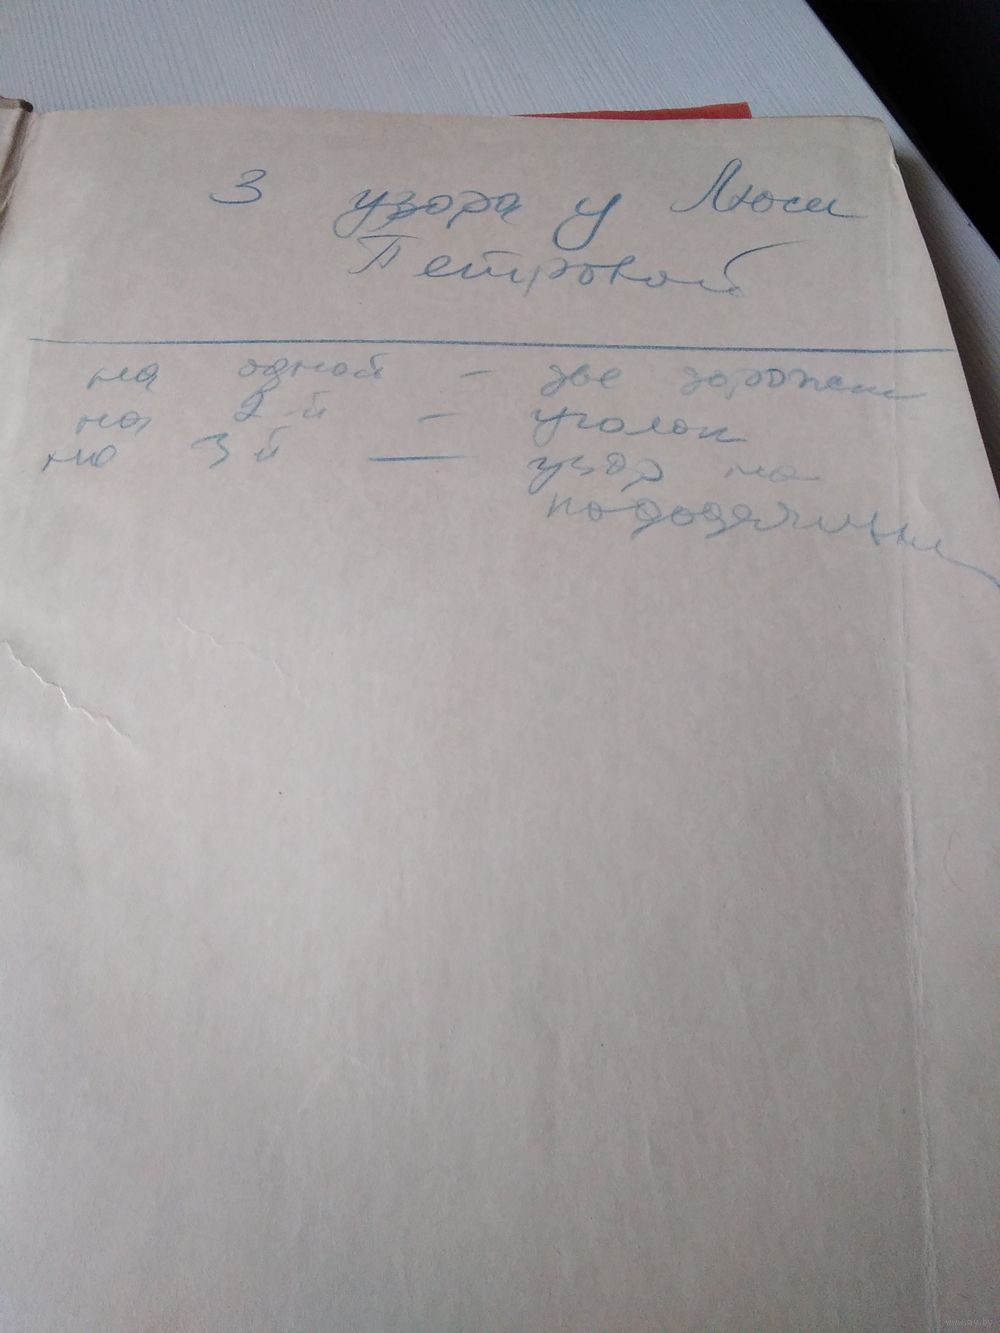 3 узора у Люси
Петровой
на одной - две дорожки
на 2-й - уголок
на 3й — узор на
пододеяльник